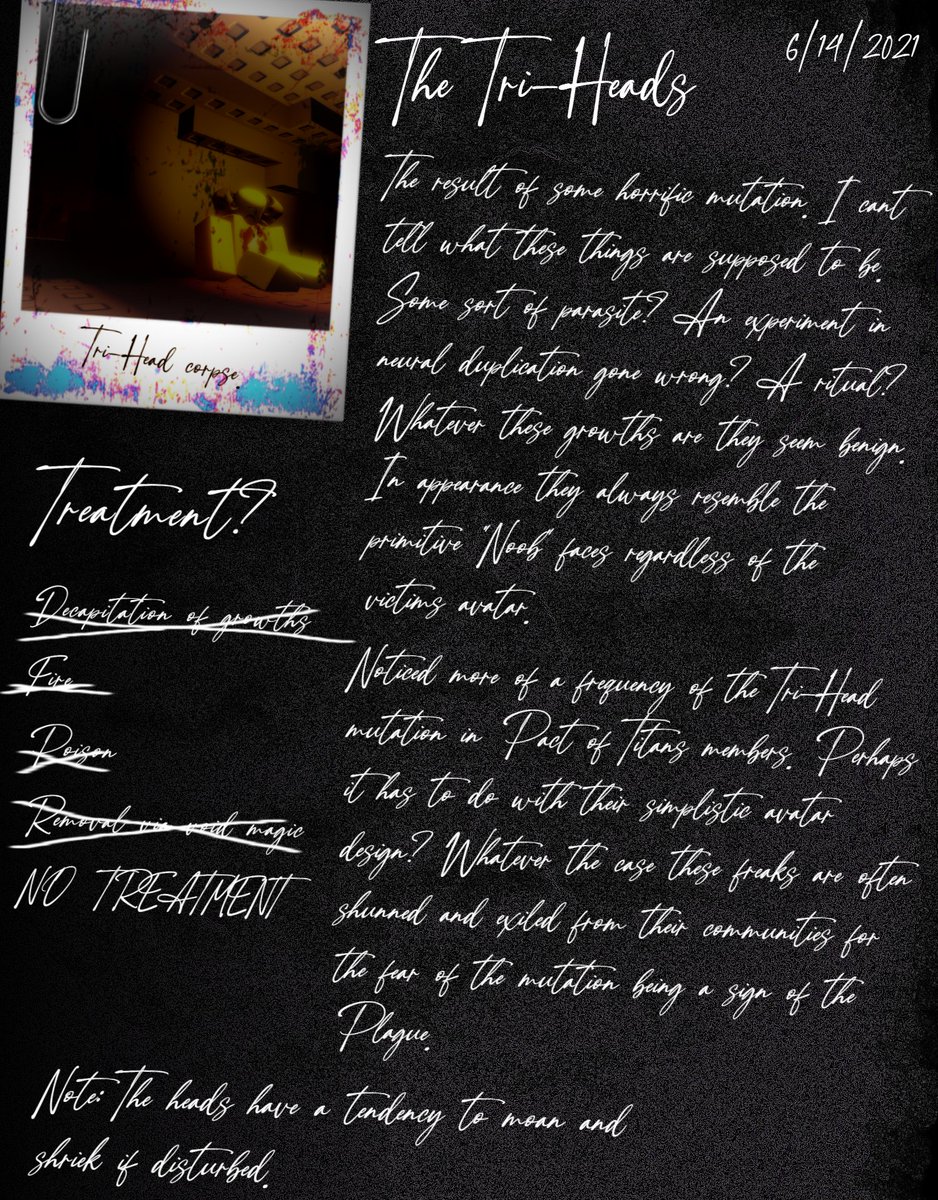 6/14/2021
The Tri-Heads
Tri-Head corpse.
The result of some horrific mutation. I cant
tell what these things are supposed to be.
Some sort of parasite? An experiment in
neural duplication gone wrong? A ritual?
Whatever these growths are they seem benign.
In appearance they always resemble the
primitive "Noob" faces regardless of the
victims avatar.
Noticed more of a frequency of the Tri-Head
mutation in Pact of Titans members. Perhaps
it has to do with their simplistic avatar
design? Whatever the case these freaks are often
shunned and exiled from their communities for
the fear of the mutation being a sign of the
Plague.
Treatment?
Decapitation of growths
Fire
Poison
Removal via void magic
NO TREATMENT
Note: The heads have a tendency to moan and
shriek if disturbed.